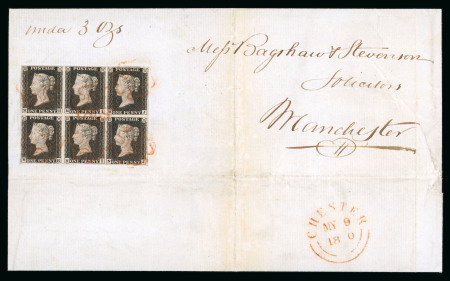 under 3 Ozs
Mess Bagshaw & Stevenson
Solicitors
Manchester
POSTAGE POSTAGE POSTAGE
ONE PENNY ONE PENNY ONE PENNY
POSTAGE POSTAGE POSTAGE
ONE PENNY ONE PENNY ONE PENNY
CHESTER
MY 9
18 0